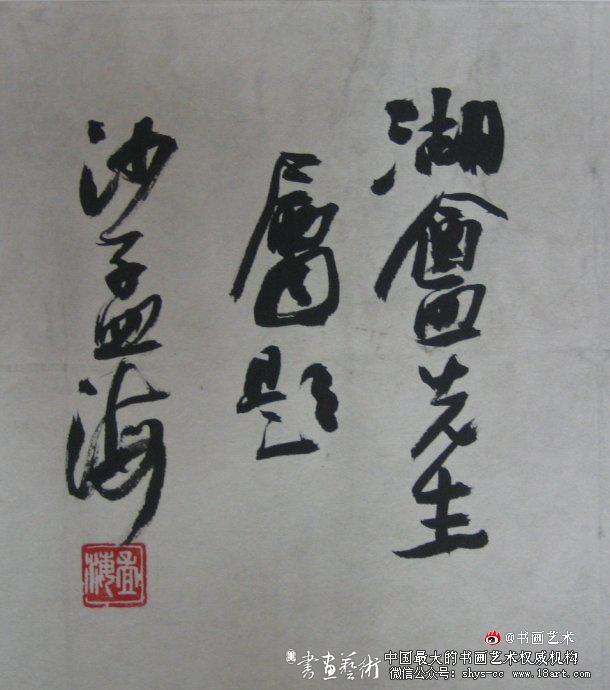 湖盦先生
屬題
沙孟海
孟海
@书画艺术
書畫藝術
中国最大的书画艺术权威机构
微信公众号: shys-cc www.18art.com